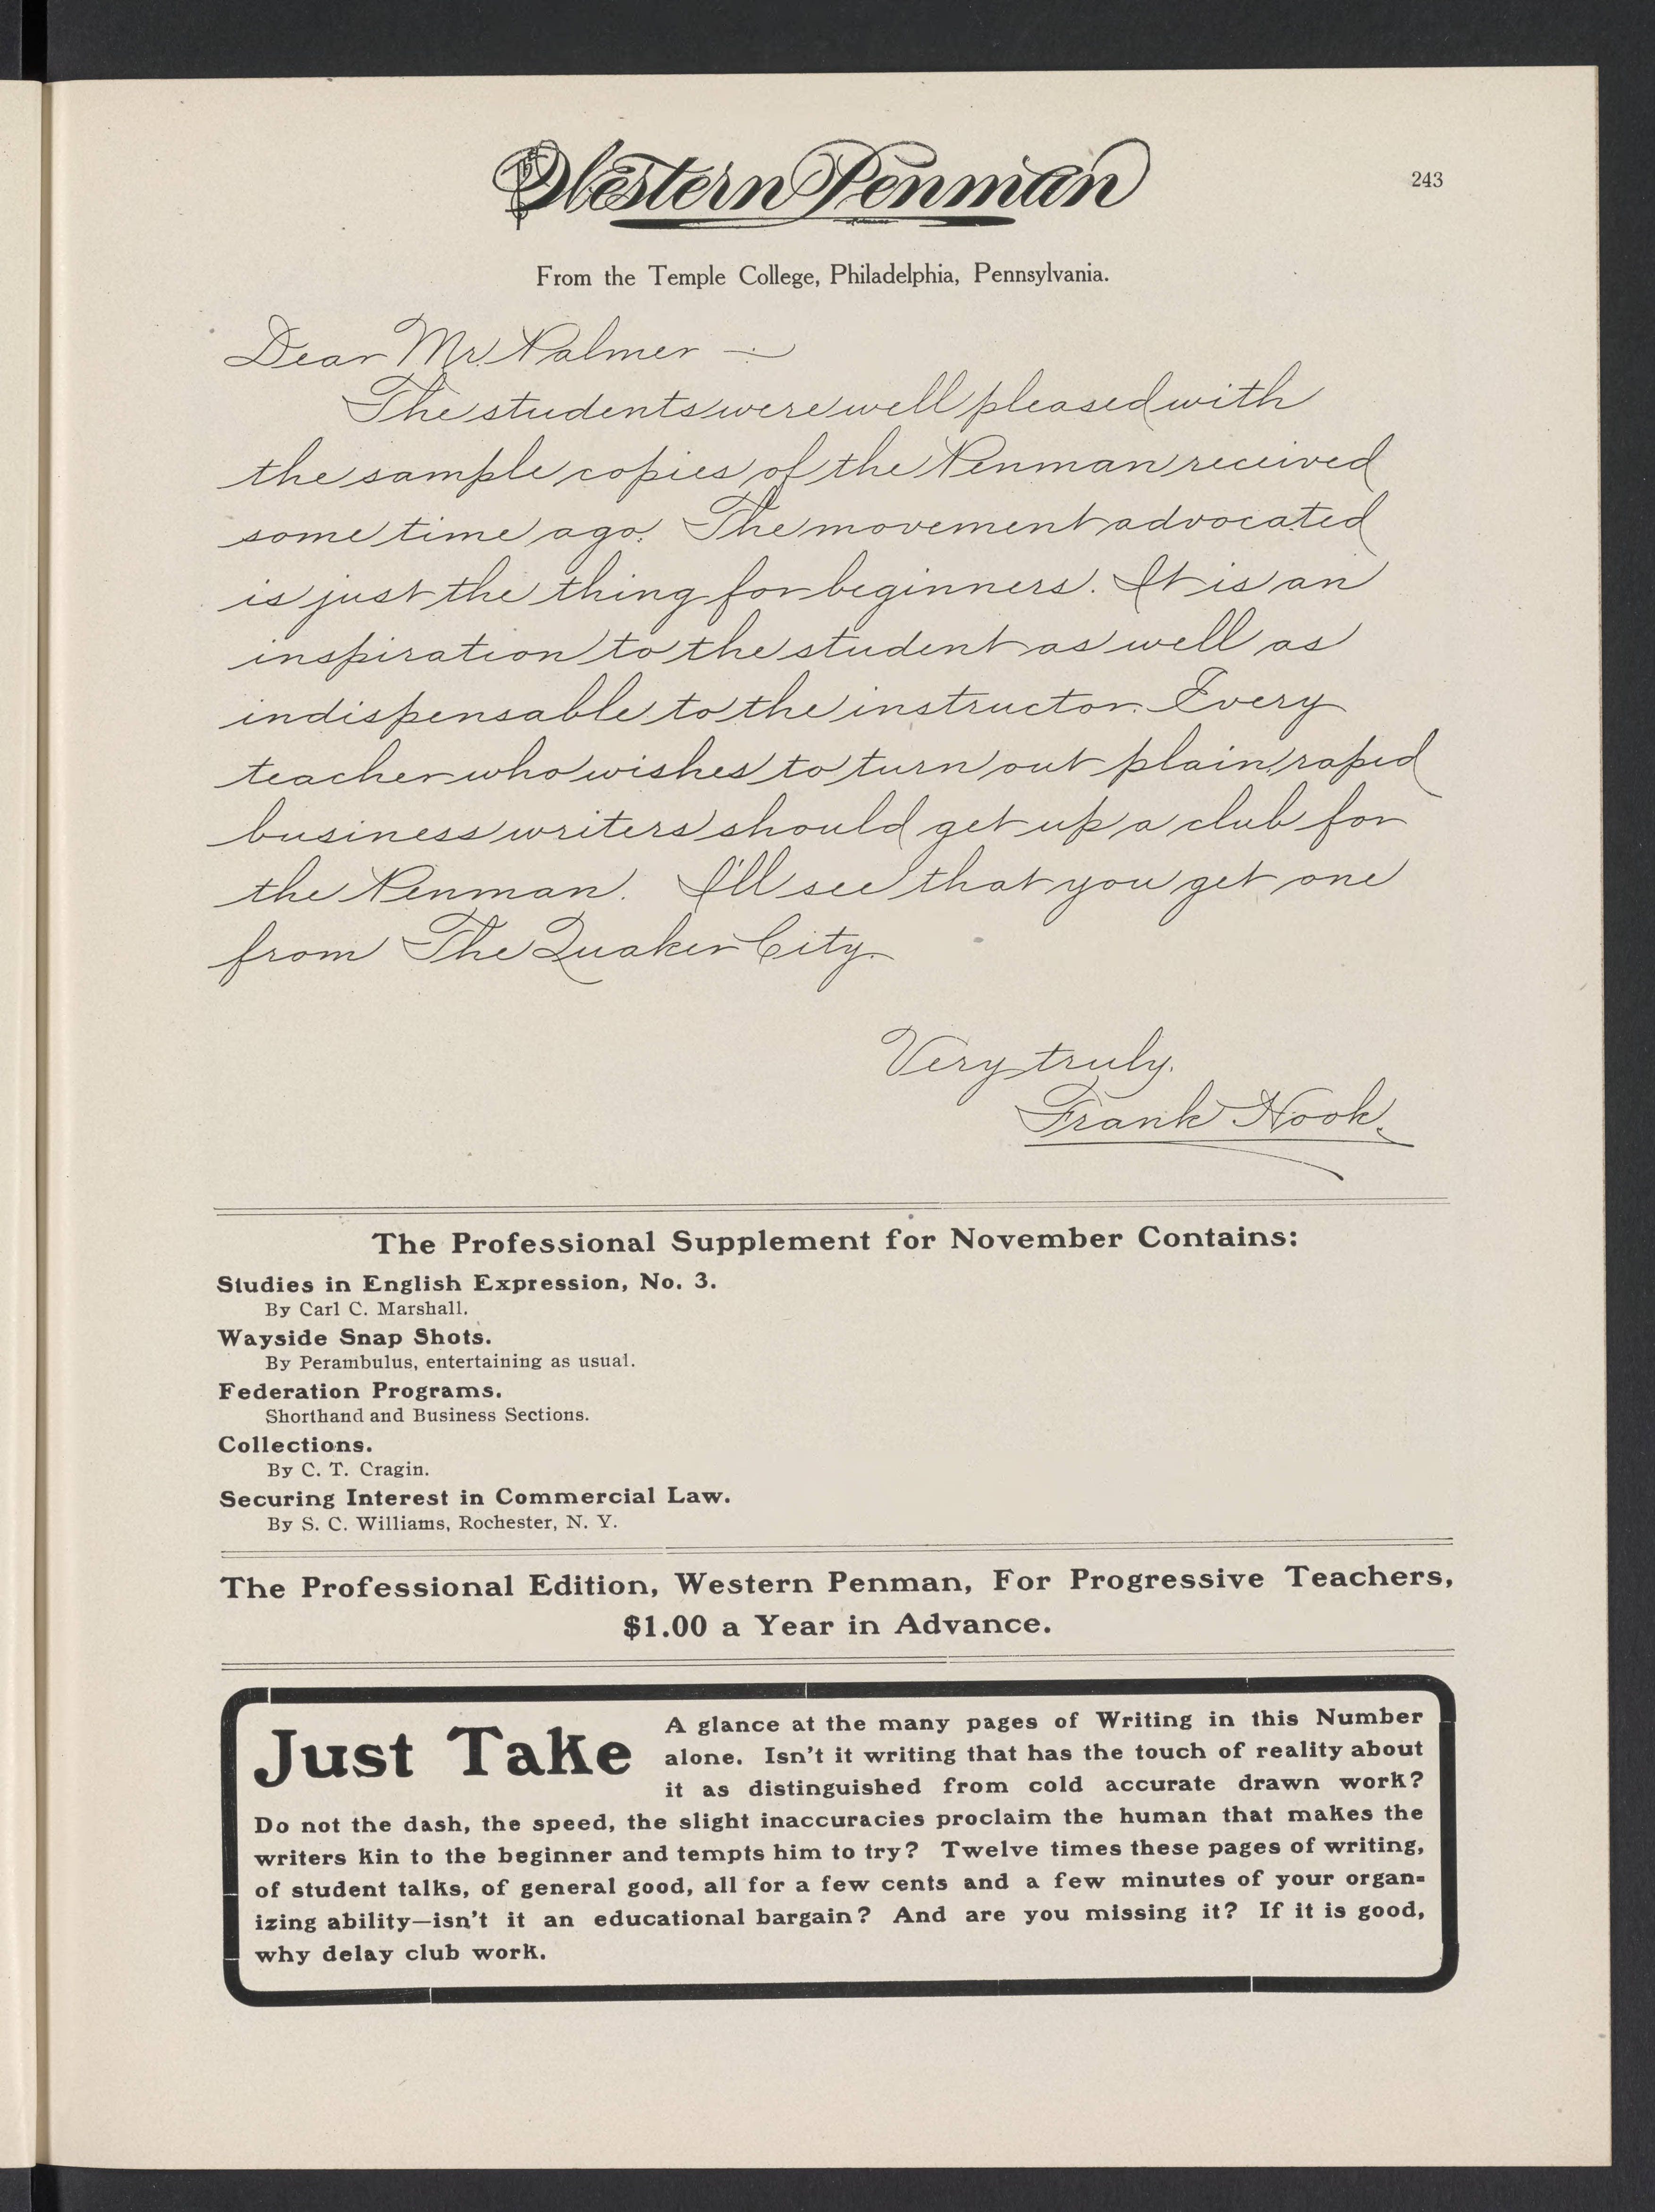 Western Penman
243
From the Temple College, Philadelphia, Pennsylvania.
Dear Mr. Palmer —
The students were well pleased with
the sample copies of the Penman received
some time ago. The movement advocated
is just the thing for beginners. It is an
inspiration to the student as well as
indispensable to the instructor. Every
teacher who wishes to turn out plain, rapid
business writers should get up a club for
the Penman. I'll see that you get one
from The Quaker City.
Very truly.
Frank Hook.
The Professional Supplement for November Contains:
Studies in English Expression, No. 3.
By Carl C. Marshall.
Wayside Snap Shots.
By Perambulus, entertaining as usual.
Federation Programs.
Shorthand and Business Sections.
Collections.
By C. T. Cragin.
Securing Interest in Commercial Law.
By S. C. Williams, Rochester, N. Y.
The Professional Edition, Western Penman, For Progressive Teachers,
$1.00 a Year in Advance.
Just Take
A glance at the many pages of Writing in this Number
alone. Isn't it writing that has the touch of reality about
it as distinguished from cold accurate drawn work?
Do not the dash, the speed, the slight inaccuracies proclaim the human that makes the
writers kin to the beginner and tempts him to try? Twelve times these pages of writing,
of student talks, of general good, all for a few cents and a few minutes of your organ-
izing ability—isn't it an educational bargain? And are you missing it? If it is good,
why delay club work.